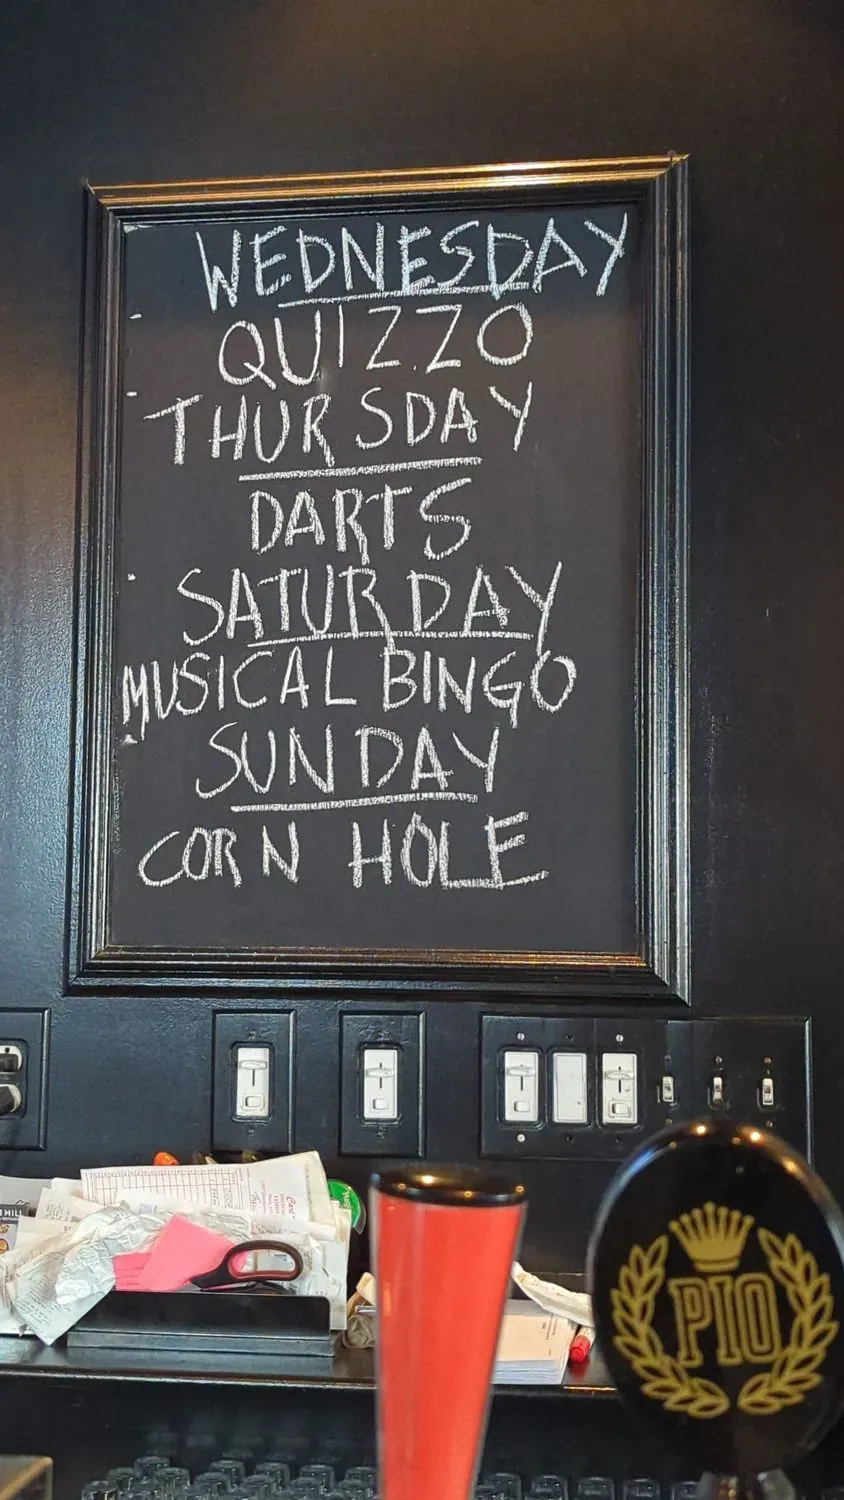 WEDNESDAY
QUIZZO
THURSDAY
DARTS
SATURDAY
MUSICAL BINGO
SUNDAY
CORN HOLE
PIO